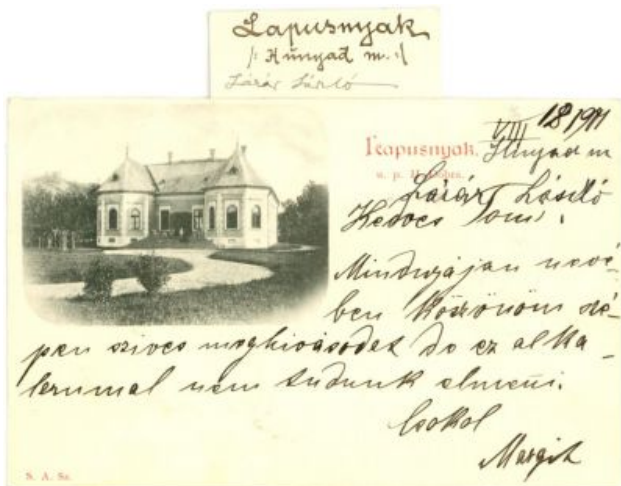 Lapusnyak
/: Hunyad m. :/
Lázár László
VIII 18 1911
Lapusnyak. Hunyad m
u. p. Dobra.
Lázár László
Kedves Tomi!
Mindnyájan nevé-
ben köszönöm szé-
pen szives meghivásodat de ez alka-
lommal nem tudunk elmenni.
Csokol
Margit
S. A. Sz.